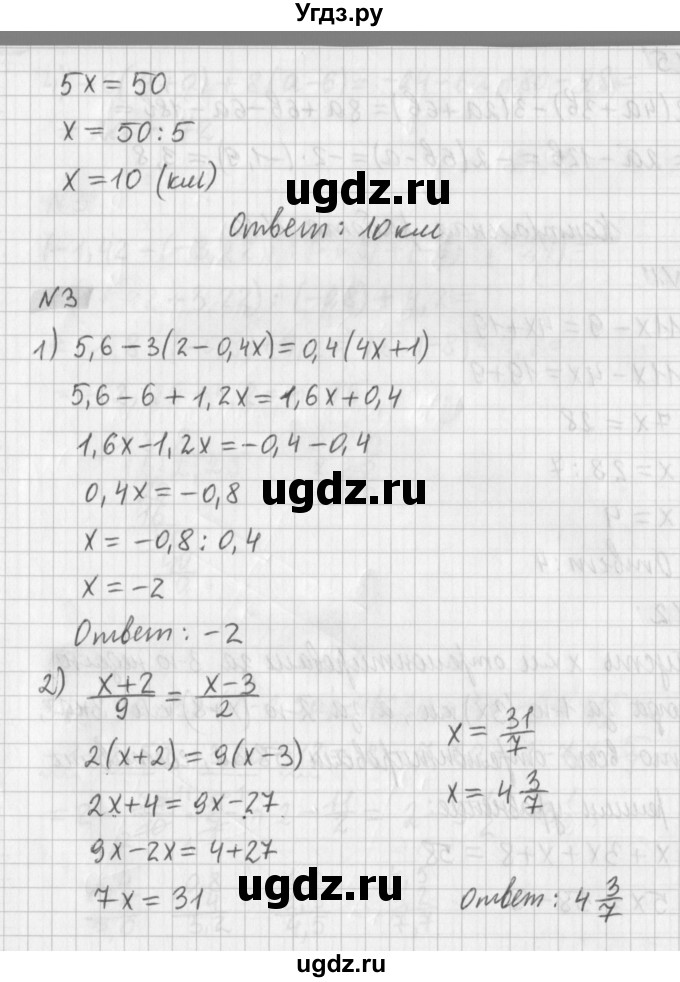 Угдз.ру
5x = 50
x = 50 : 5
x = 10 (км)
ugdz.ru
Ответ: 10 км
№3
1) 5,6 − 3(2 − 0,4x) = 0,4(4x+1)
5,6 − 6 + 1,2x = 1,6x + 0,4
1,6x − 1,2x = −0,4 − 0,4
0,4x = −0,8
ugdz.ru
x = −0,8 : 0,4
x = −2
Ответ: −2
2) (x+2)/9 = (x−3)/2
2(x+2) = 9(x−3)
2x+4 = 9x−27
9x−2x = 4+27
7x = 31
x = 31/7
x = 4 3/7
ugdz.ru
Ответ: 4 3/7
ugdz.ru